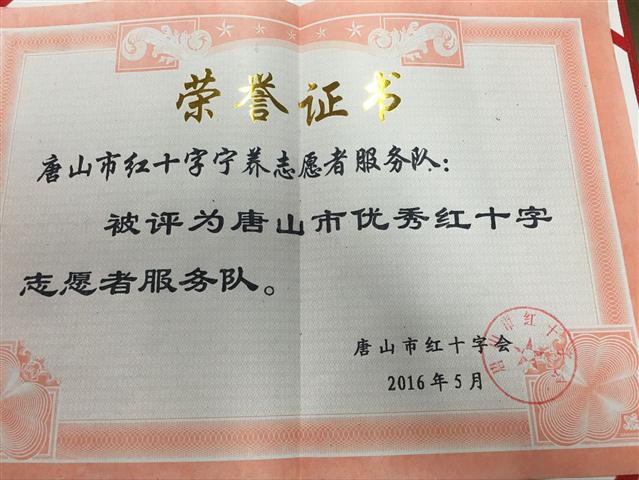 荣誉证书
唐山市红十字宁养志愿者服务队：
被评为唐山市优秀红十字
志愿者服务队。
唐山市红十字会
2016年5月
唐山市红十字会